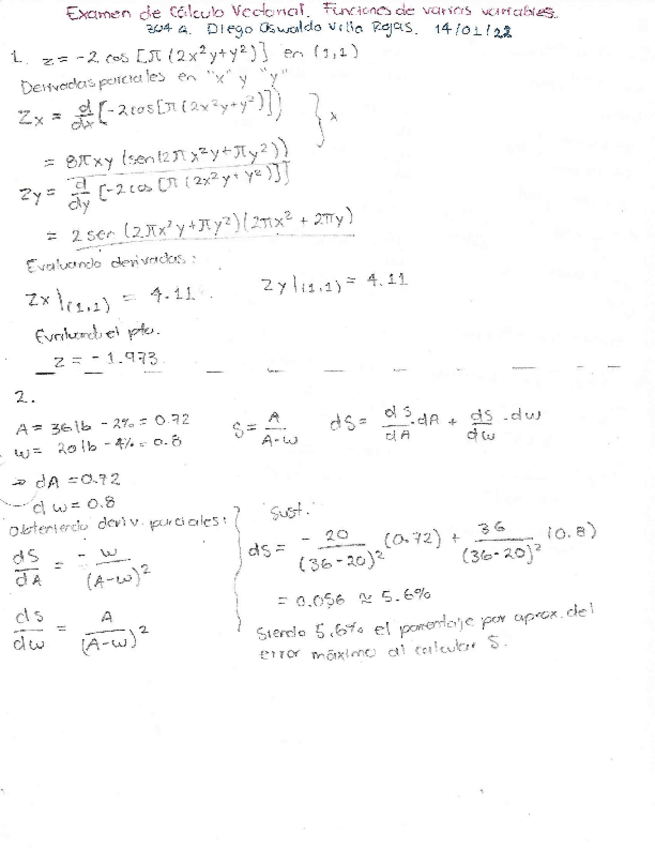 Examen de Cálculo Vectorial. Funciones de varias variables.
304 a. Diego Oswaldo Villa Rojas. 14/01/22
1. z = -2 cos [π (2x²y+y²)] en (1,1)
Derivadas parciales en "x" y "y"
Zx = d/dx [-2cos[π(2x²y+y²)]] } x
= 8πxy (sen(2πx²y+πy²))
Zy = d/dy [-2cos [π(2x²y+y²)]]
= 2 sen (2πx²y+πy²)(2πx² + 2πy)
Evaluando derivadas:
Zx|(1,1) = 4.11. Zy|(1,1) = 4.11
Evaluand el pto.
z = - 1.973
2.
A = 36 lb - 2% = 0.72
w = 20 lb - 4% = 0.8
S = A/(A-w) dS = dS/dA · dA + dS/dw · dw
⇒ dA = 0.72
dw = 0.8
Obteniendo deriv. parciales:
dS/dA = - w/(A-w)²
ds/dw = A/(A-w)²
Sust.
dS = - 20/(36-20)² (0.72) + 36/(36-20)² (0.8)
= 0.056 ≈ 5.6%
Siendo 5.6% el porcentaje por aprox. del
error máximo al calcular S.